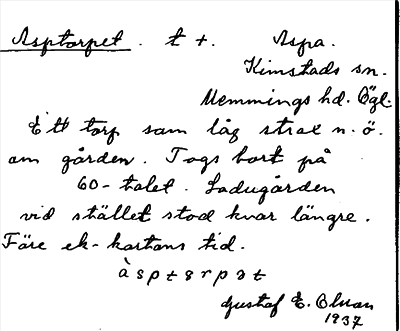 Asptorpet. t +. Aspa.
Kimstads sn.
Memmings hd. Ögl.
Ett torp som låg strax n.ö.
om gården. Togs bort på
60-talet. Ladugården
vid stället stod kvar längre.
Före ek-kartans tid.
àsptɵrpət
Gustaf E. Olsson
1937